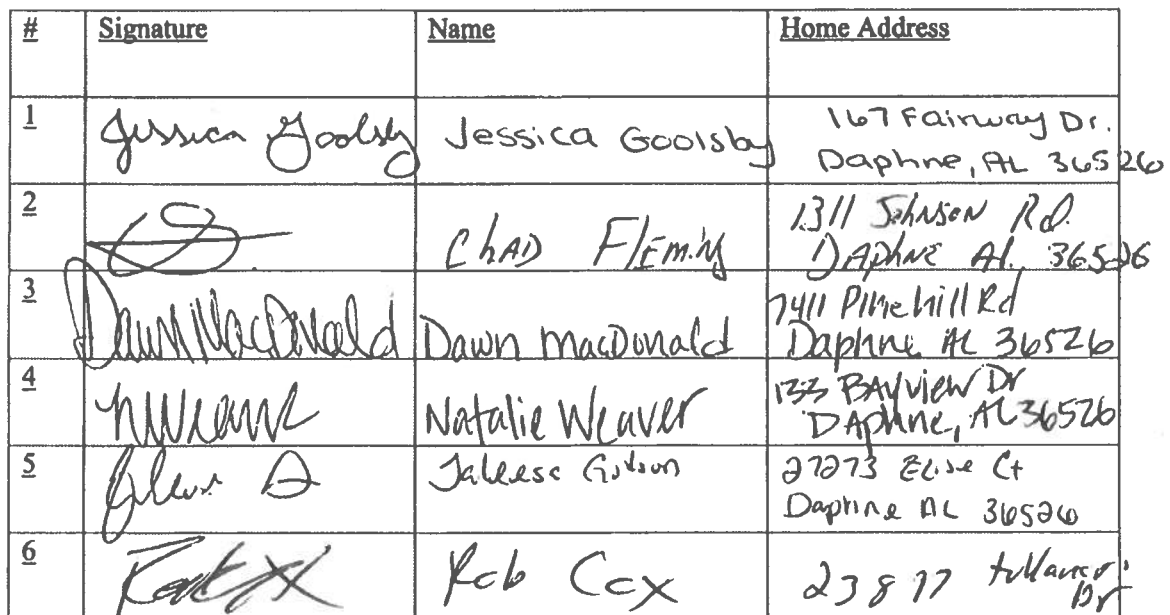 # Signature Name Home Address
1 Jessica Goolsby Jessica Goolsby 167 Fairway Dr.
Daphne, AL 36526
2 Chad Fleming 1311 Johnson Rd.
Daphne Al. 36526
3 Dawn MacDonald Dawn MacDonald 7411 Pinehill Rd
Daphne AL 36526
4 NWeaver Natalie Weaver 133 Bayview Dr
Daphne, AL 36526
5 27273 Elise Ct
Daphne AL 36526
6 Rob Cox 23877 Dr